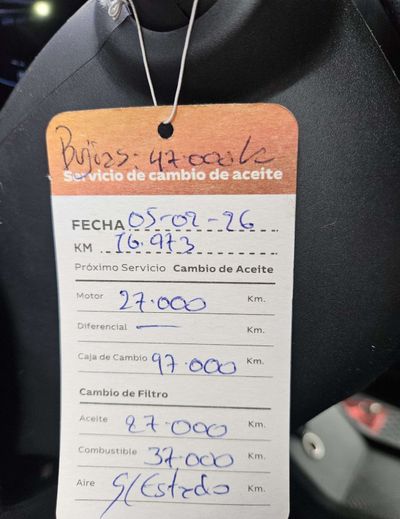 Bujías: 47.000k
Servicio de cambio de aceite
FECHA 05-02-26
KM 16.973
Próximo Servicio Cambio de Aceite
Motor 27.000 Km.
Diferencial — Km.
Caja de Cambio 97.000 Km.
Cambio de Filtro
Aceite 27.000 Km.
Combustible 37.000 Km.
Aire S/Estado Km.